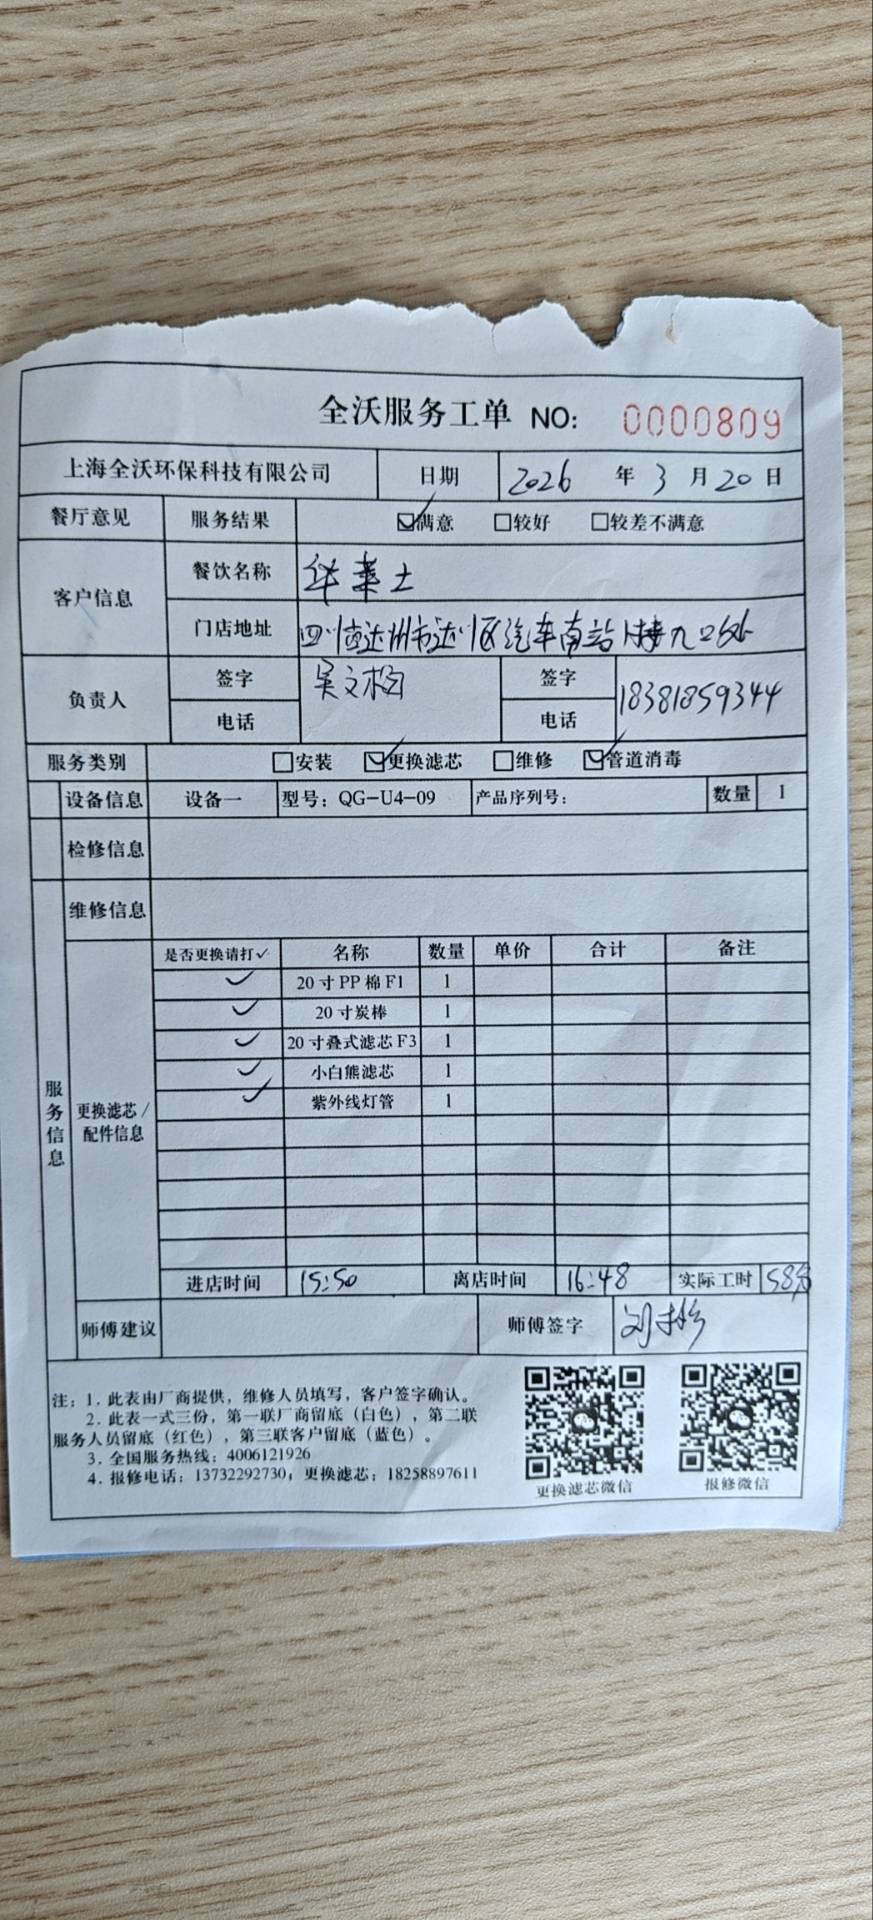 全沃服务工单 NO: 0000809
上海全沃环保科技有限公司 日期 2026 年 3 月 20 日
餐厅意见 服务结果 ☑满意 □较好 □较差不满意
客户信息 餐饮名称 华莱士
门店地址 四川省达州市达川区汽车南站
负责人 签字 吴文 签字
电话 电话 18381859344
服务类别 □安装 ☑更换滤芯 □维修 ☑管道消毒
设备信息 设备一 型号：QG-U4-09 产品序列号： 数量 1
检修信息
维修信息
服务信息
更换滤芯/配件信息
是否更换请打✓ 名称 数量 单价 合计 备注
✓ 20寸PP棉F1 1
✓ 20寸炭棒 1
✓ 20寸叠式滤芯F3 1
✓ 小白熊滤芯 1
✓ 紫外线灯管 1
进店时间 15:50 离店时间 16:48 实际工时 58分
师傅建议 师傅签字 刘
注：1．此表由厂商提供，维修人员填写，客户签字确认。
2．此表一式三份，第一联厂商留底（白色），第二联
服务人员留底（红色），第三联客户留底（蓝色）。
3．全国服务热线：4006121926
4．报修电话：13732292730；更换滤芯：18258897611
更换滤芯微信 报修微信